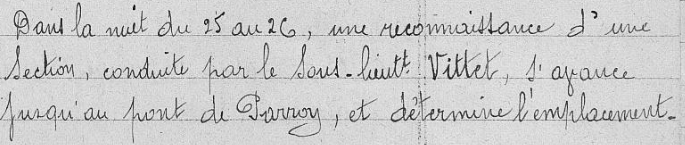 Dans la nuit du 25 au 26, une reconnaissance d'une
Section, conduite par le Sous-lieutt Vittet, s'avance
jusqu'au pont de Parroy, et détermine l'emplacement-